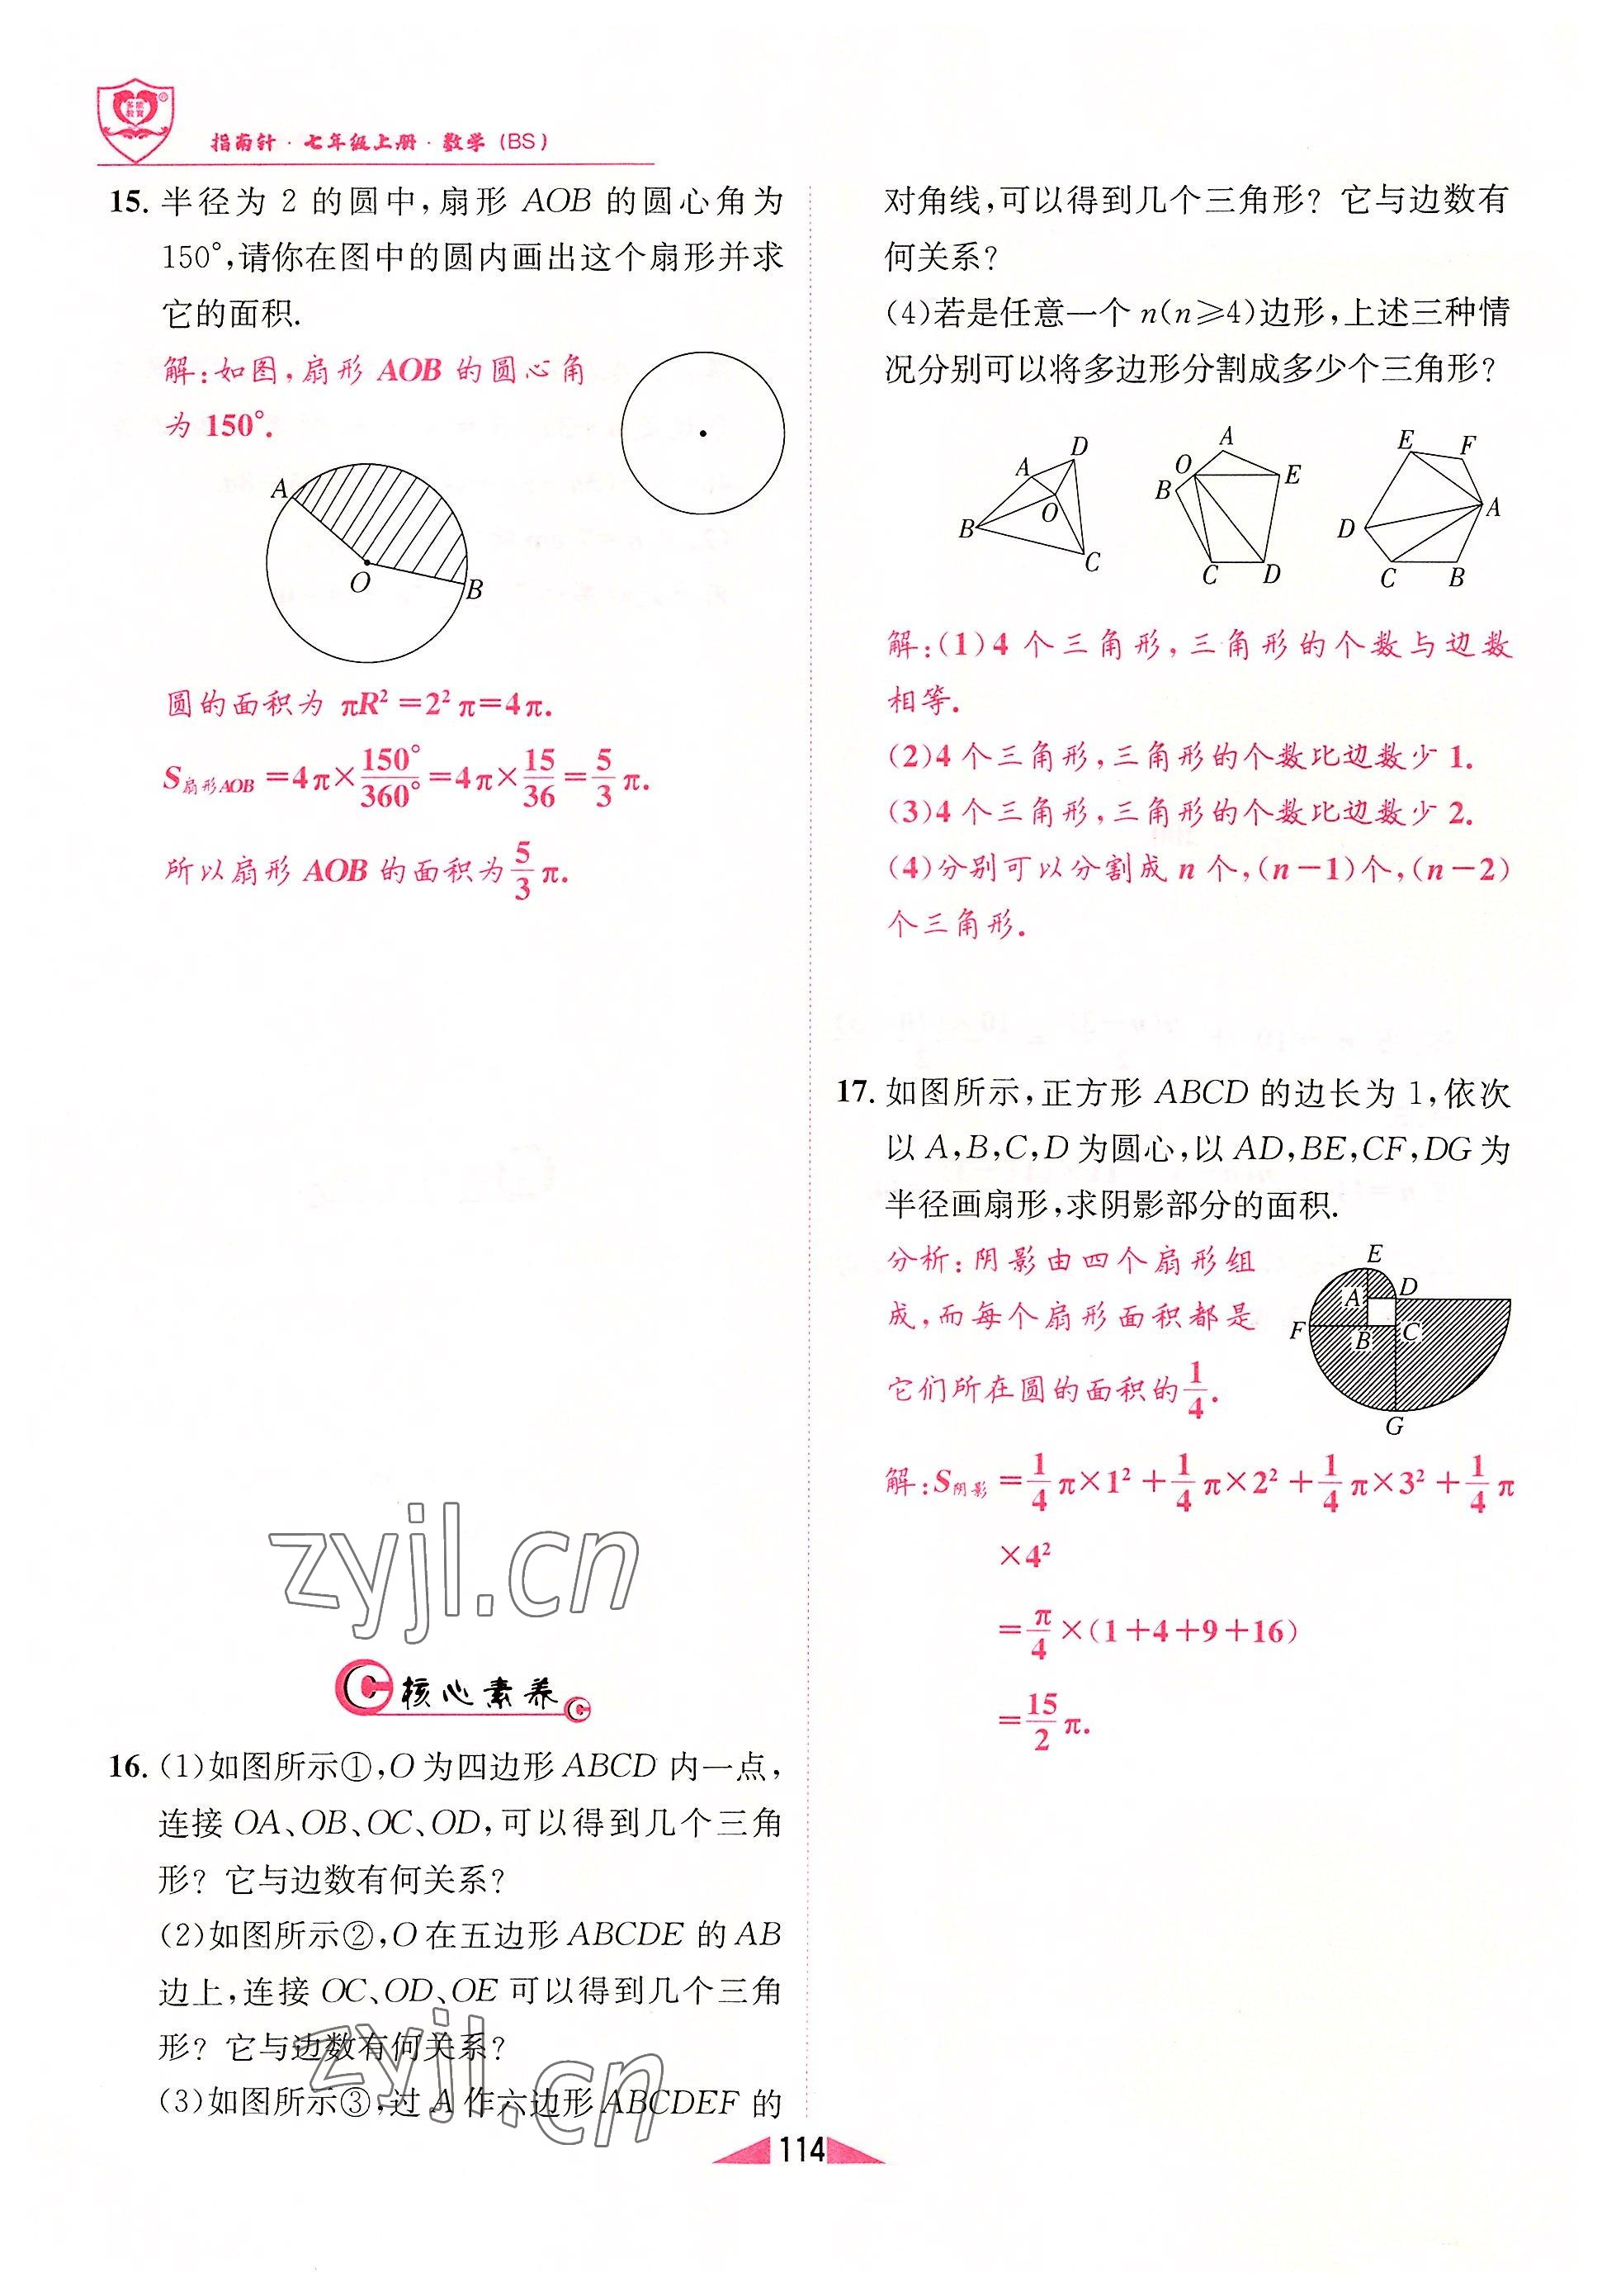 多能
教育
指南针·七年级上册·数学(BS)
15. 半径为 2 的圆中,扇形 AOB 的圆心角为
150°,请你在图中的圆内画出这个扇形并求
它的面积.
解:如图,扇形 AOB 的圆心角
为 150°.
A
O
B
圆的面积为 πR²=2²π=4π.
S扇形AOB=4π×150°/360°=4π×15/36=5/3π.
所以扇形 AOB 的面积为5/3π.
zyjl.cn
C 核心素养 C
16. (1)如图所示①,O为四边形ABCD 内一点,
连接 OA、OB、OC、OD,可以得到几个三角
形? 它与边数有何关系?
(2)如图所示②,O在五边形ABCDE的AB
边上,连接 OC、OD、OE 可以得到几个三角
形? 它与边数有何关系?
(3)如图所示③,过 A 作六边形ABCDEF的
zyjl.cn
对角线,可以得到几个三角形? 它与边数有
何关系?
(4)若是任意一个n(n≥4)边形,上述三种情
况分别可以将多边形分割成多少个三角形?
A D B O C
A O E B C D
E F A D C B
解:(1)4 个三角形,三角形的个数与边数
相等.
(2)4个三角形,三角形的个数比边数少1.
(3)4个三角形,三角形的个数比边数少2.
(4)分别可以分割成 n 个,(n-1)个,(n-2)
个三角形.
17. 如图所示,正方形 ABCD 的边长为 1,依次
以A,B,C,D为圆心,以AD,BE,CF,DG为
半径画扇形,求阴影部分的面积.
分析:阴影由四个扇形组
成,而每个扇形面积都是
它们所在圆的面积的1/4.
E
A D
F B C
G
解:S阴影=1/4π×1²+1/4π×2²+1/4π×3²+1/4π
×4²
=π/4×(1+4+9+16)
=15/2π.
114